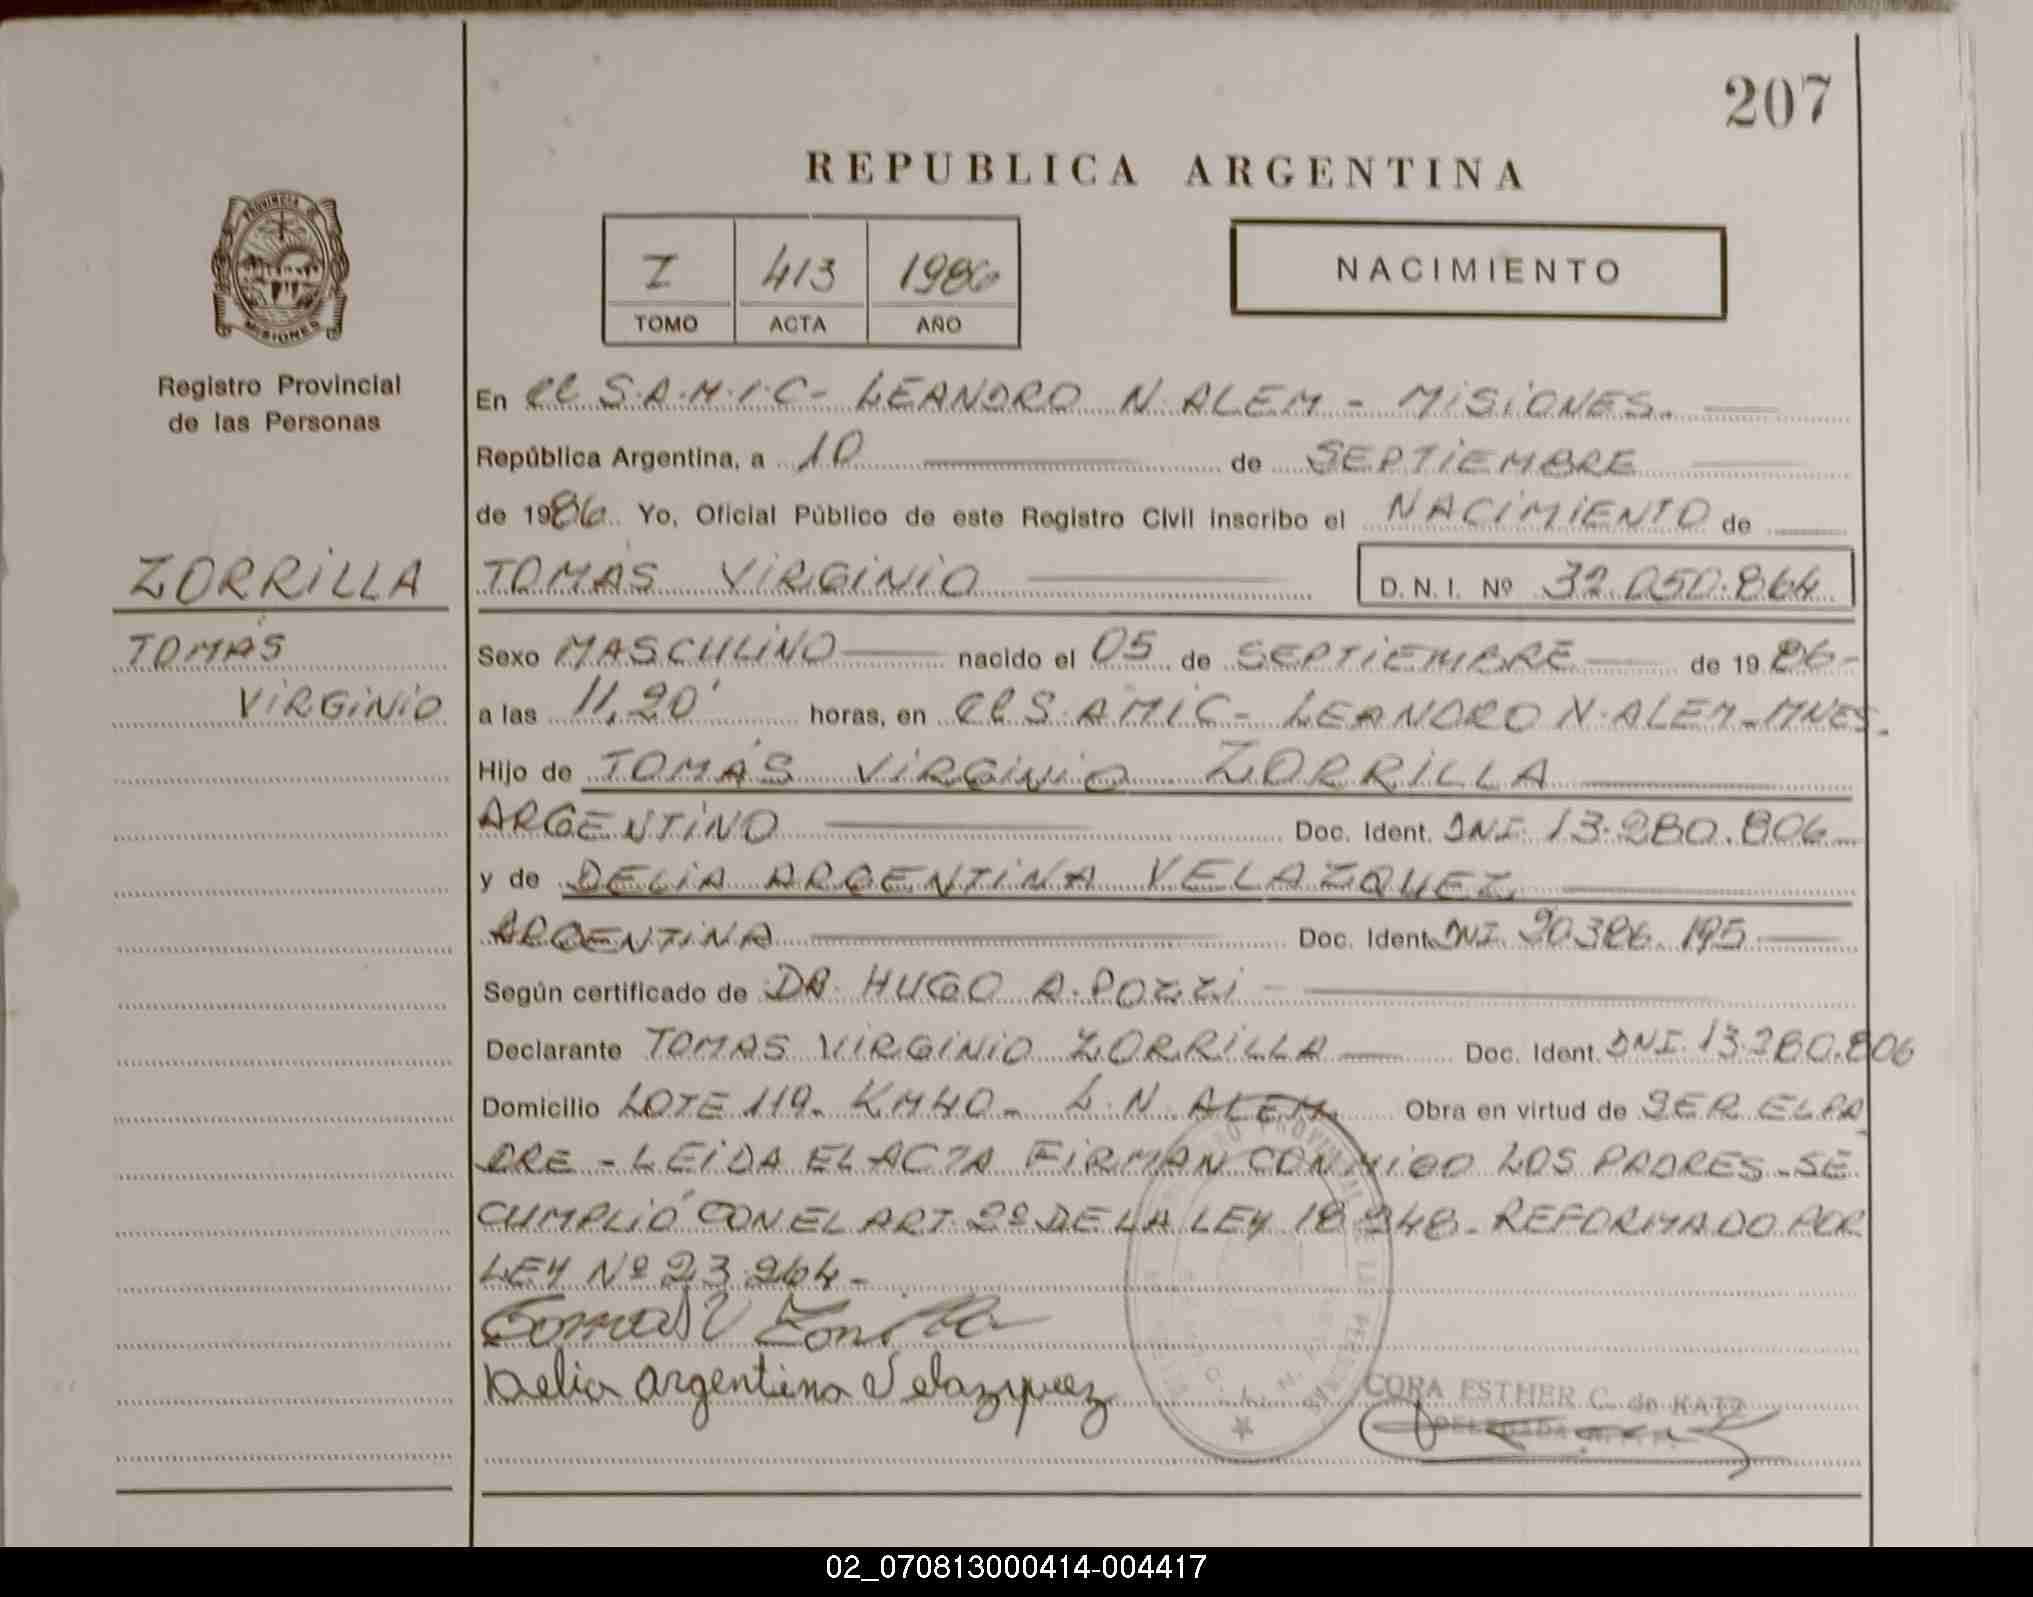 207
REPUBLICA ARGENTINA
I 413 1986
TOMO ACTA AÑO
NACIMIENTO
PROVINCIA DE
MISIONES
Registro Provincial
de las Personas
ZORRILLA
TOMÁS
VIRGINIO
En el S.A.M.I.C- LEANDRO N. ALEM - MISIONES.
República Argentina, a 10 de SEPTIEMBRE
de 1986 Yo, Oficial Público de este Registro Civil inscribo el NACIMIENTO de
TOMÁS VIRGINIO D.N.I. Nº 32.050.864
Sexo MASCULINO nacido el 05 de SEPTIEMBRE de 1986-
a las 11,20' horas, en el S.AMIC- LEANDRO N. ALEM-MNES.
Hijo de TOMÁS VIRGINIO ZORRILLA
ARGENTINO Doc. Ident. DNI. 13.280.806
y de DELIA ARGENTINA VELAZQUEZ
ARGENTINA Doc. Ident. DNI. 20.386.195
Según certificado de DR. HUGO A. POZZI
Declarante TOMAS VIRGINIO ZORRILLA Doc. Ident. DNI. 13.280.806
Domicilio LOTE 119. KM40- L.N. ALEM. Obra en virtud de SER EL PA
DRE - LEIDA EL ACTA FIRMAN CONMIGO LOS PADRES - SE
CUMPLIÓ CON EL ART. 2º DE LA LEY 18.248- REFORMADO POR
LEY Nº 23.264-
Tomas V Zorrilla
Delia Argentina Velazquez
CORA ESTHER C. de KATZ
DELEGADA
02_070813000414-004417